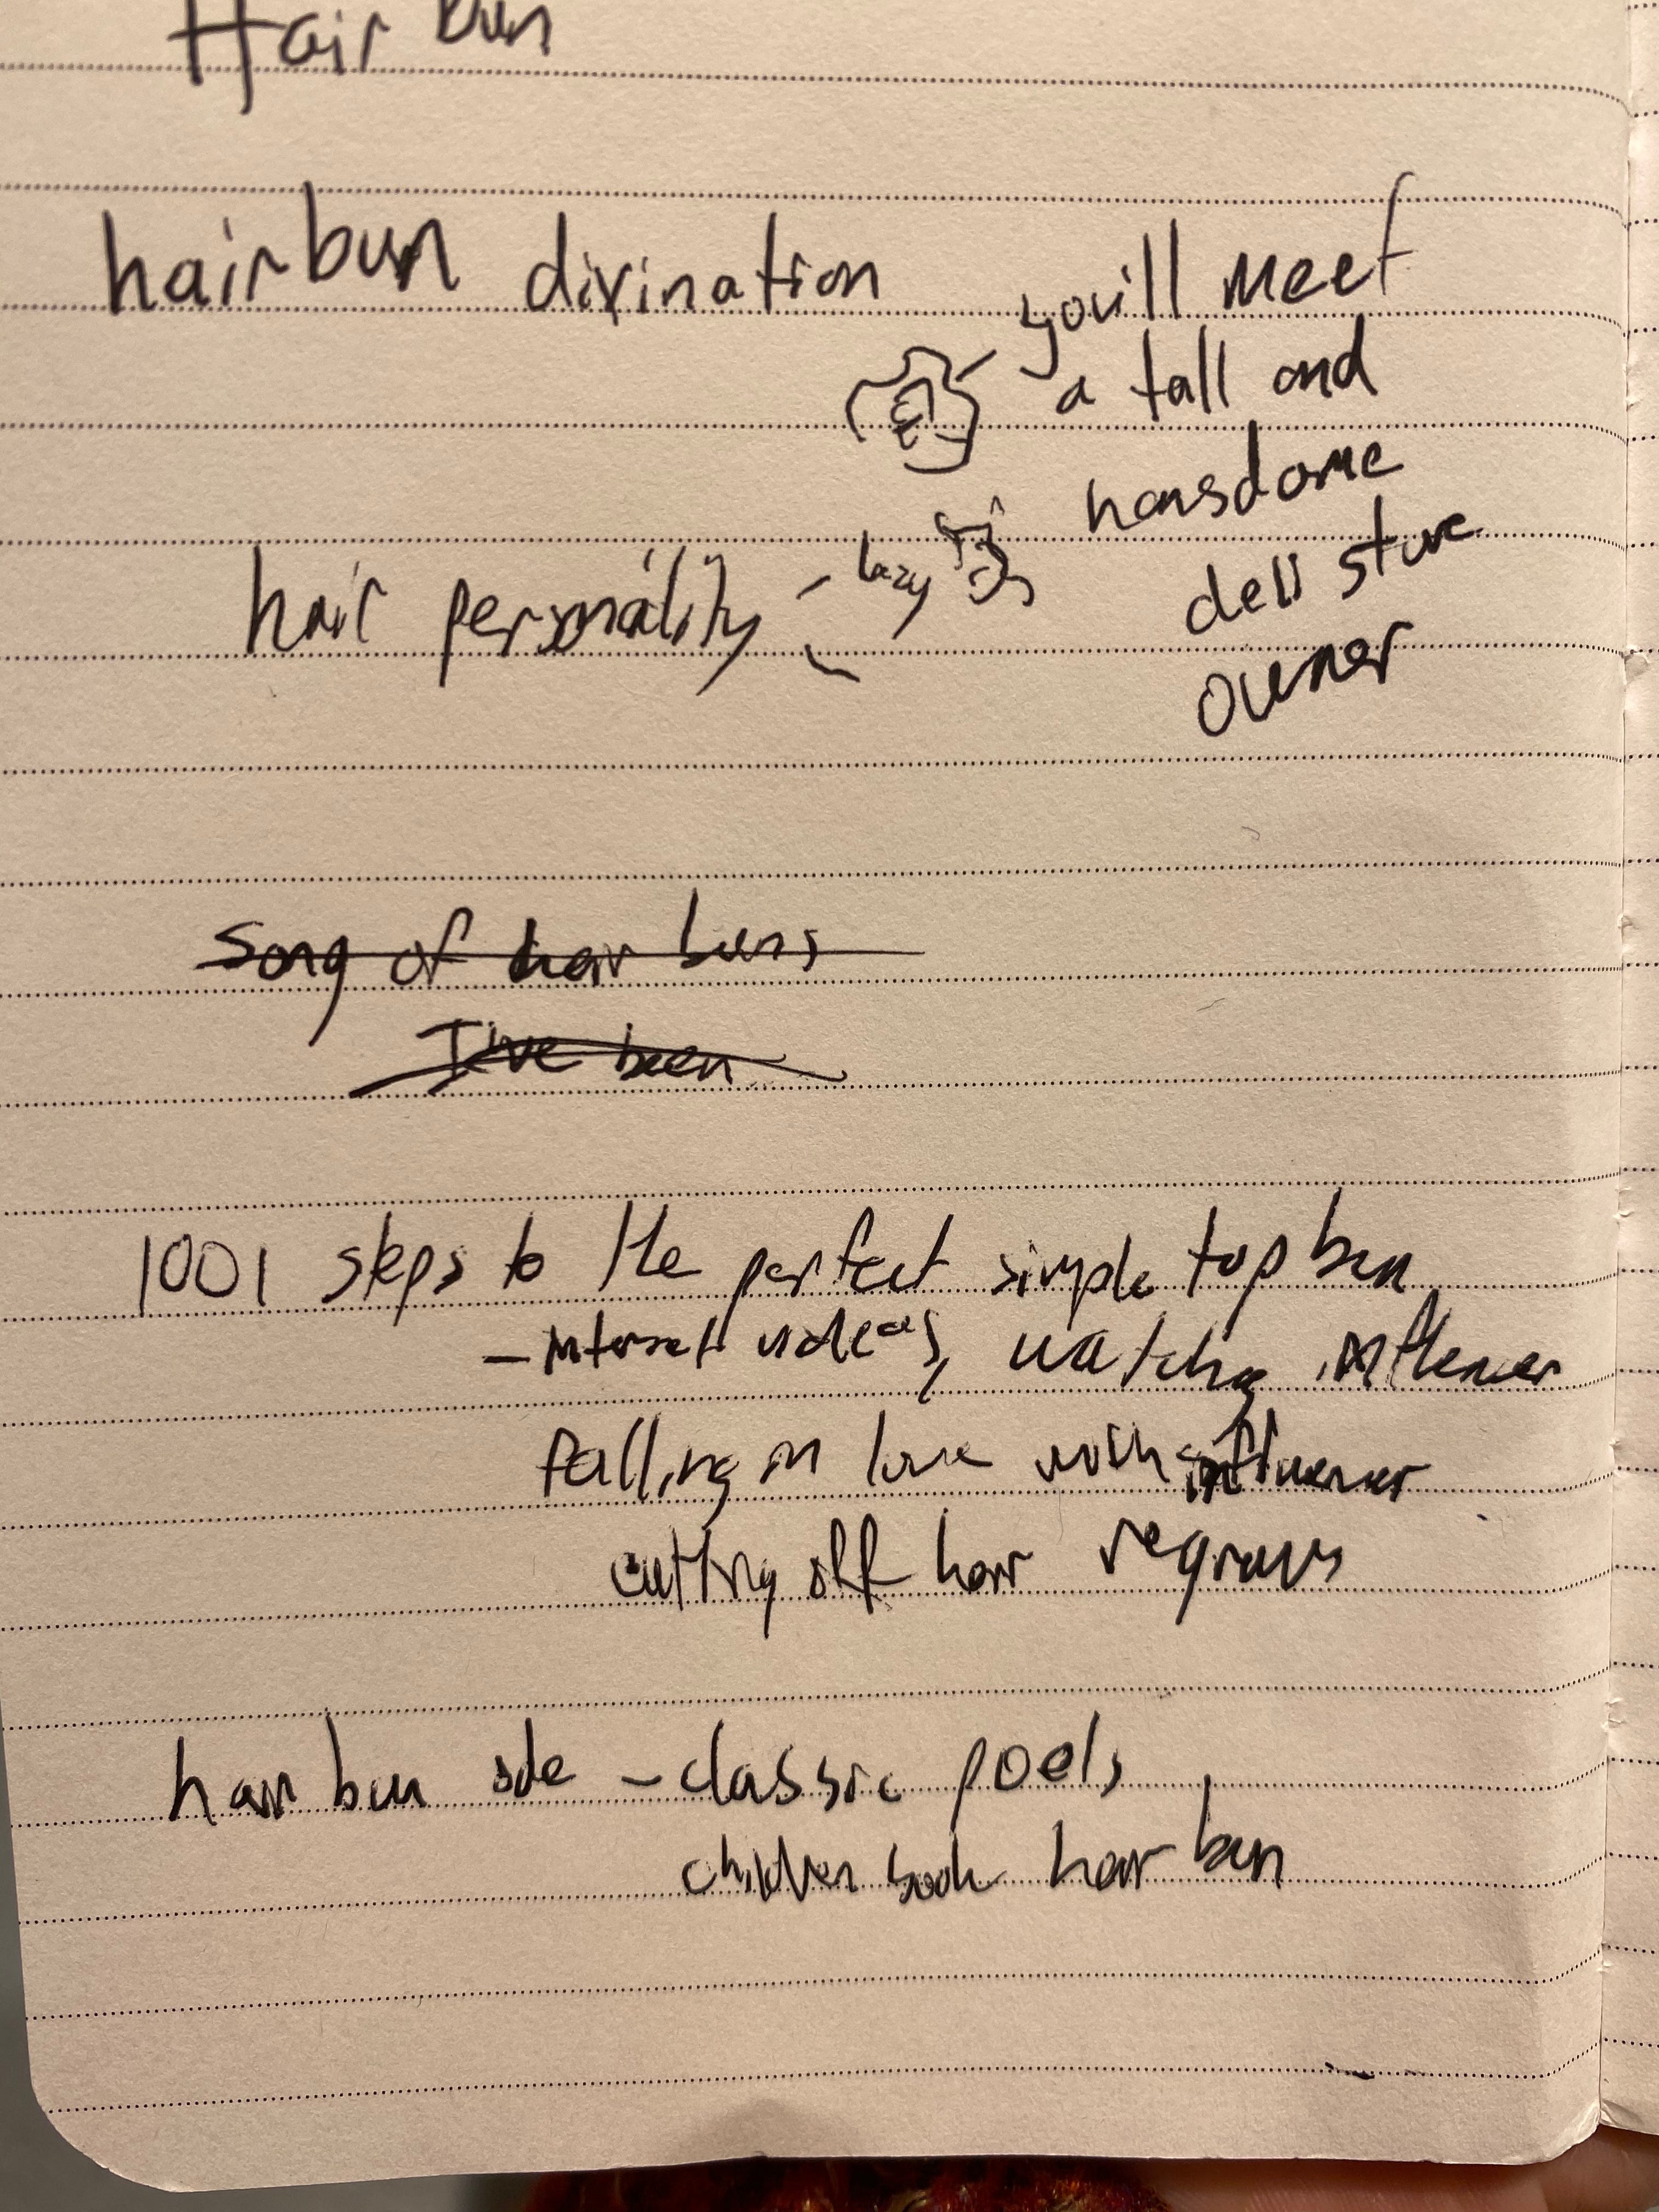 Hair bun
hair bun divination
you'll meet
a tall and
hansdome
deli store
owner
hair personality - lazy
Song of hair buns
I've been
1001 steps to the perfect simple top bun
- internet videos, watching influencer
falling in love with influencer
cutting off hair regrows
hair bun ode - classic poets
children book hair bun